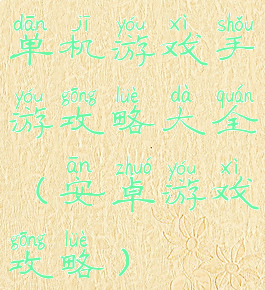 dān jī yóu xì shǒu
单机游戏手
yóu gōng luè dà quán
游攻略大全
ān zhuó yóu xì
（安卓游戏
gōng luè
攻略）